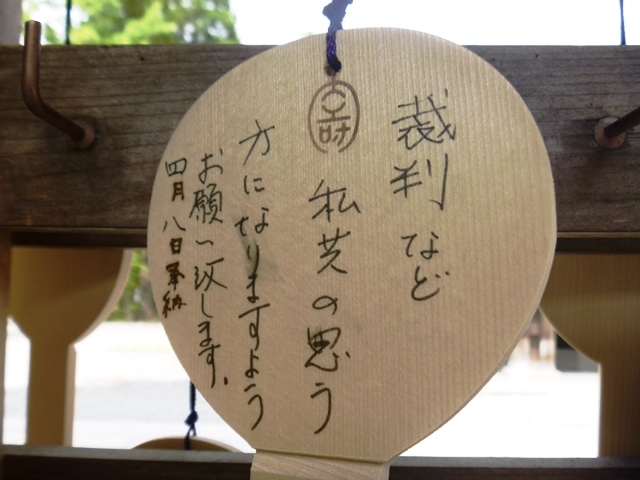 裁判など
私共の思う
方になりますよう
お願い致します。
四月八日奉納